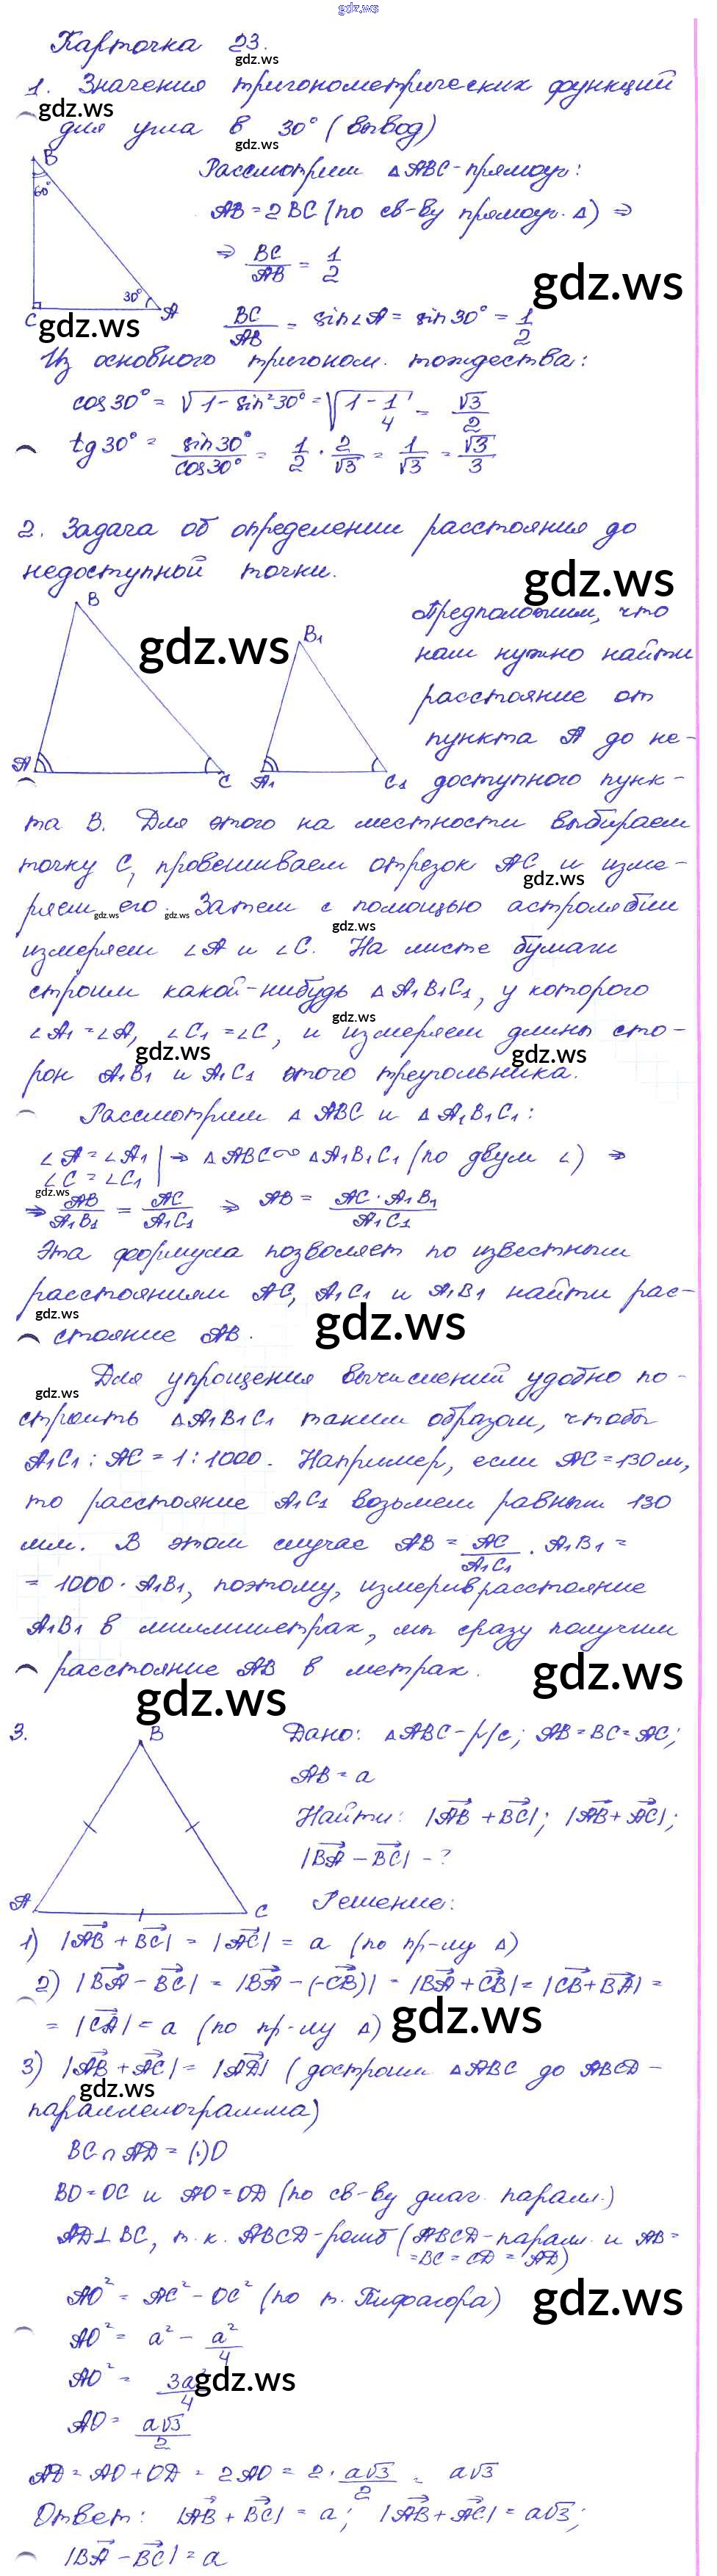 gdz.ws
Карточка 23.
gdz.ws
1. Значения тригонометрических функций
gdz.ws
для угла в 30° (вывод)
gdz.ws
B
60°
30°
C
A
Рассмотрим △ABC-прямоуг:
AB = 2BC (по св-ву прямоуг. △) ⇒
⇒ BC/AB = 1/2
gdz.ws
gdz.ws
BC/AB = sin∠A = sin30° = 1/2
Из основного тригоном. тождества:
cos30° = √(1 - sin²30°) = √(1 - 1/4) = √3/2
tg30° = sin30°/cos30° = 1/2 · 2/√3 = 1/√3 = √3/3
2. Задача об определении расстояния до
недоступной точки.
gdz.ws
gdz.ws
B
A
C
B₁
A₁
C₁
Предположим, что
нам нужно найти
расстояние от
пункта A до не-
доступного пунк-
та B. Для этого на местности выбираем
точку C, провешиваем отрезок AC и изме-
gdz.ws
ряем его. Затем с помощью астролябии
gdz.ws gdz.ws
gdz.ws
измеряем ∠A и ∠C. На листе бумаги
строим какой-нибудь △A₁B₁C₁, у которого
gdz.ws
∠A₁ = ∠A, ∠C₁ = ∠C, и измеряем длины сто-
gdz.ws gdz.ws
рон A₁B₁ и A₁C₁ этого треугольника.
Рассмотрим △ABC и △A₁B₁C₁:
∠A = ∠A₁ | ⇒ △ABC ∞ △A₁B₁C₁ (по двум ∠) ⇒
∠C = ∠C₁ |
gdz.ws
⇒ AB/A₁B₁ = AC/A₁C₁ ⇒ AB = AC · A₁B₁/A₁C₁
Эта формула позволяет по известным
расстояниям AC, A₁C₁ и A₁B₁ найти рас-
gdz.ws gdz.ws
стояние AB.
Для упрощения вычислений удобно по-
gdz.ws
строить △A₁B₁C₁ таким образом, чтобы
A₁C₁ : AC = 1 : 1000. Например, если AC = 130 м,
то расстояние A₁C₁ возьмем равным 130
мм. В этом случае AB = AC/A₁C₁ · A₁B₁ =
= 1000 · A₁B₁, поэтому, измерив расстояние
A₁B₁ в миллиметрах, мы сразу получим
расстояние AB в метрах.
gdz.ws
gdz.ws
3.
B
A
C
Дано: △ABC - р/с; AB = BC = AC;
AB = a
Найти: |AB + BC|; |AB + AC|;
|BA - BC| - ?
Решение:
1) |AB + BC| = |AC| = a (по пр-лу △)
2) |BA - BC| = |BA - (-CB)| = |BA + CB| = |CB + BA| =
= |CA| = a (по пр-лу △)
gdz.ws
3) |AB + AC| = |AD| (достроим △ABC до ABCD -
gdz.ws
параллелограмма)
BC ∩ AD = (·)O
BO = OC и AO = OD (по св-ву диаг. паралл.)
AD ⊥ BC, т.к. ABCD - ромб (ABCD - паралл. и AB =
= BC = CD = AD)
AO² = AC² - OC² (по т. Пифагора)
gdz.ws
AO² = a² - a²/4
AO² = 3a²/4
gdz.ws
AO = a√3/2
AD = AO + OD = 2AO = 2 · a√3/2 = a√3
Ответ: |AB + BC| = a; |AB + AC| = a√3;
|BA - BC| = a